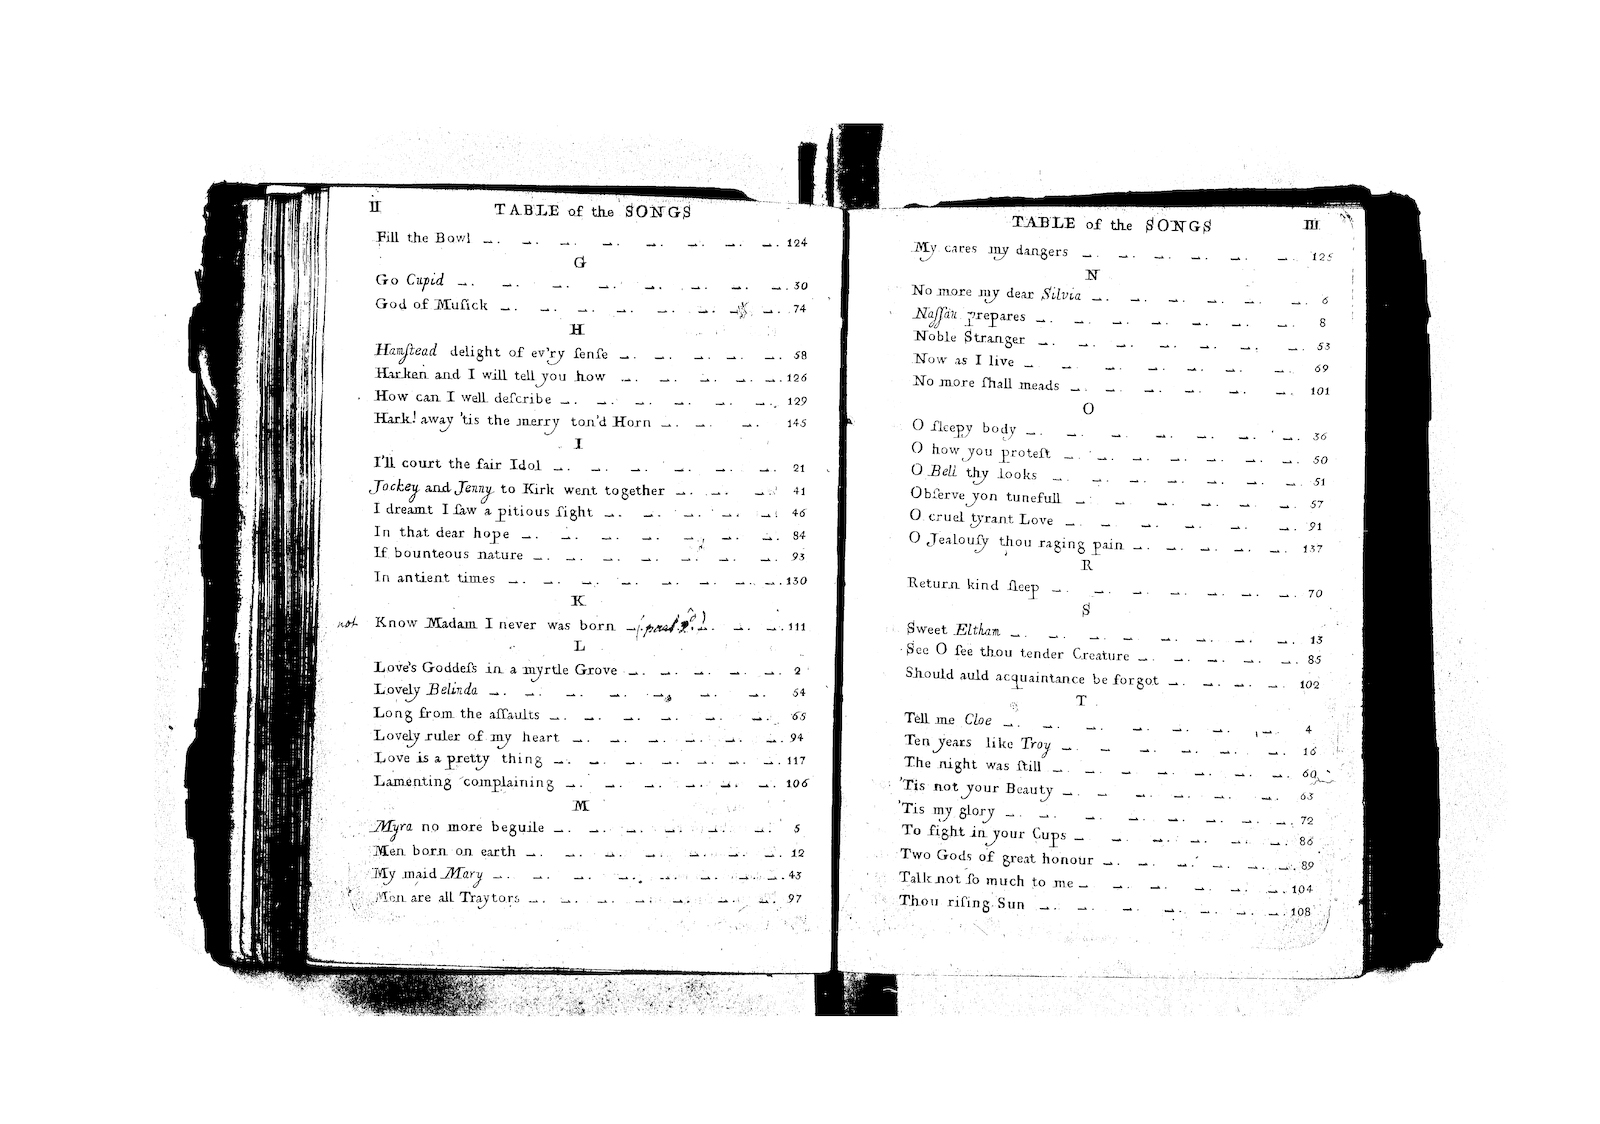 II
TABLE of the SONGS
Fill the Bowl 124
G
Go Cupid 30
God of Muſick 74
H
Hamſtead delight of ev'ry ſenſe 58
Harken and I will tell you how 126
How can I well deſcribe 129
Hark! away 'tis the merry ton'd Horn 145
I
I'll court the fair Idol 21
Jockey and Jenny to Kirk went together 41
I dreamt I ſaw a pitious ſight 46
In that dear hope 84
If bounteous nature 93
In antient times 130
K
not Know Madam I never was born 111
L
Love's Goddeſs in a myrtle Grove 2
Lovely Belinda 54
Long from the aſſaults 65
Lovely ruler of my heart 94
Love is a pretty thing 117
Lamenting complaining 106
M
Myra no more beguile 5
Men born on earth 12
My maid Mary 43
Men are all Traytors 97
TABLE of the SONGS
III
My cares my dangers 125
N
No more my dear Silvia 6
Naſſau prepares 8
Noble Stranger 53
Now as I live 69
No more ſhall meads 101
O
O ſleepy body 36
O how you proteſt 50
O Bell thy looks 51
Obſerve yon tunefull 57
O cruel tyrant Love 91
O Jealouſy thou raging pain 137
R
Return kind ſleep 70
S
Sweet Eltham 13
See O ſee thou tender Creature 85
Should auld acquaintance be forgot 102
T
Tell me Cloe 4
Ten years like Troy 16
The night was ſtill 60
'Tis not your Beauty 63
'Tis my glory 72
To fight in your Cups 86
Two Gods of great honour 89
Talk not ſo much to me 104
Thou riſing Sun 108